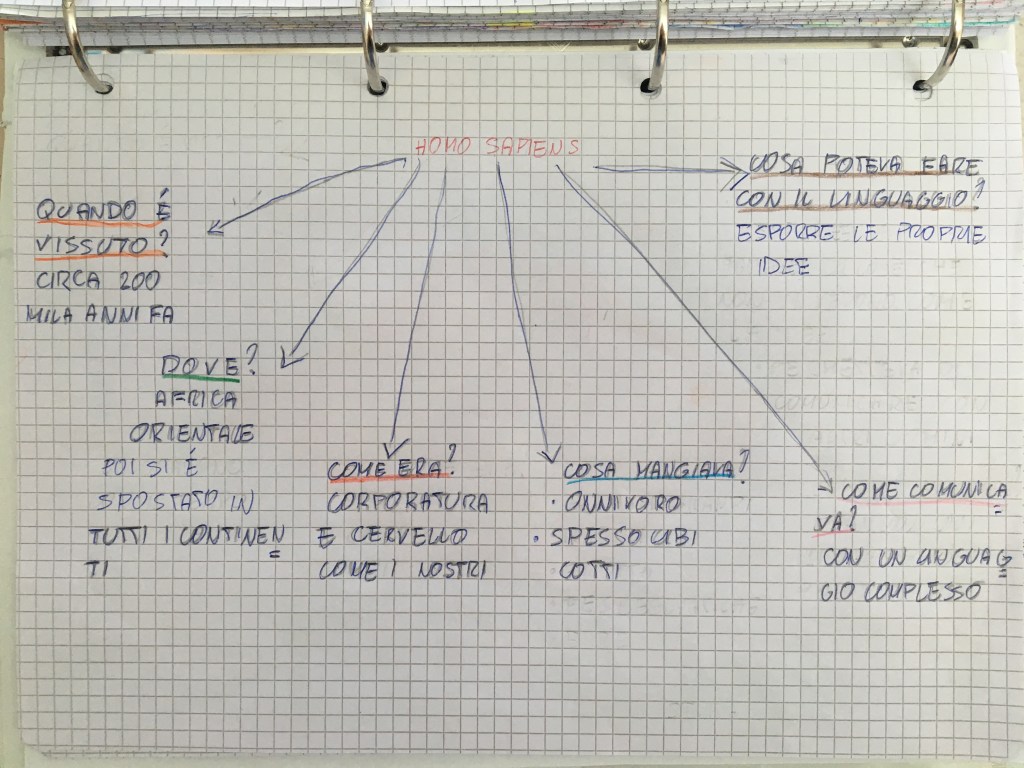 HOMO SAPIENS
QUANDO É
VISSUTO?
CIRCA 200
MILA ANNI FA
DOVE?
AFRICA
ORIENTALE
POI SI É
SPOSTATO IN
TUTTI I CONTINEN
TI
COME ERA?
CORPORATURA
E CERVELLO
COME I NOSTRI
COSA MANGIAVA?
· ONNIVORO
· SPESSO CIBI
COTTI
COME COMUNICA
VA?
CON UN LINGUAG
GIO COMPLESSO
COSA POTEVA FARE
CON IL LINGUAGGIO?
ESPORRE LE PROPRIE
IDEE